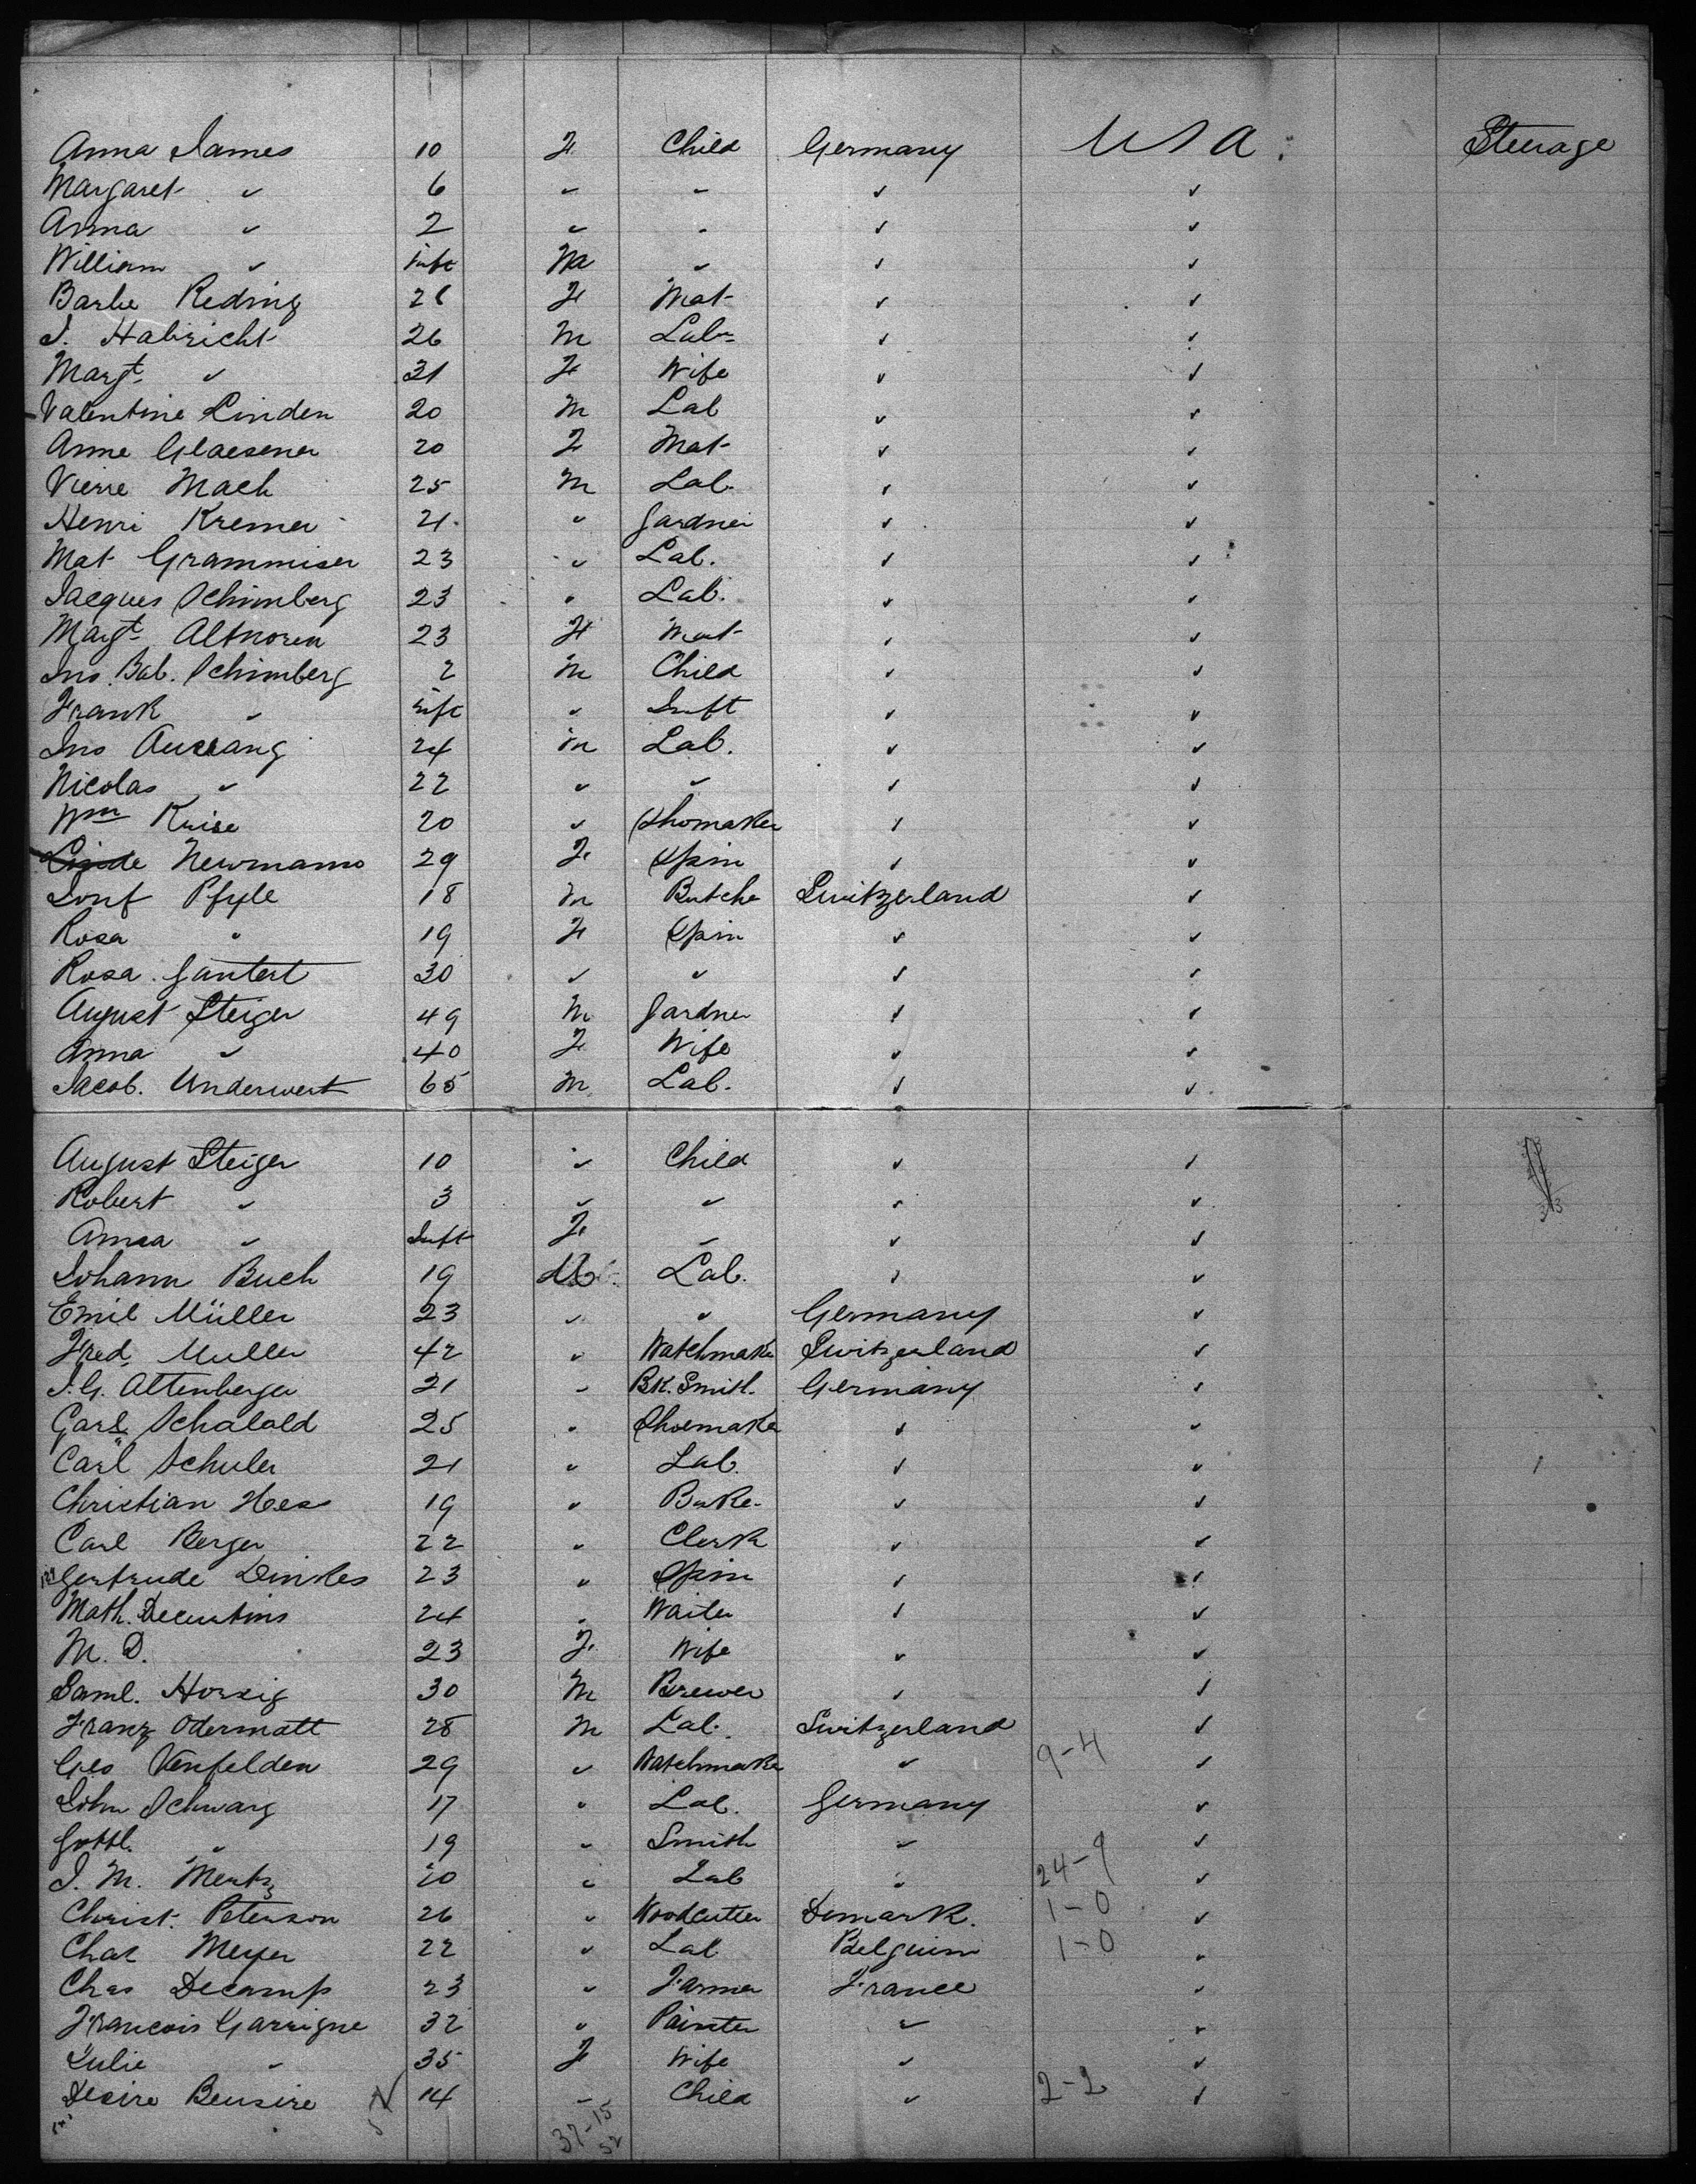 Anna James 10 F Child Germany USA. Steerage
Margaret " 6 " " " "
Anna " 2 " " " "
William " inft Ma " " "
Barbe Reding F Mat " "
J. Habricht 26 M Labr " "
Margt " 31 F Wife " "
Valentine Linden 20 M Lab " "
Anne Glaesener 20 F Mat " "
Pierre Mach 25 M Lab. " "
Henri Kremer 21 " Gardner " "
Mat Grammiser 23 " Lab. " "
Jacques Schimberg 23 " Lab. " "
Margt Altnoren 23 F Mat " "
Jno Bab. Schimberg 2 M Child " "
Frank " inft " Inft " "
Jno 24 m Lab. " "
Nicolas " 22 " " " "
Wm Krise 20 " Shomaker " "
Newmann 29 F Spin " "
Pfyle 18 m Butcher Switzerland "
Rosa " 19 F Spin " "
Rosa Gantert 30 " " " "
August Steiger 49 M Gardner " "
Anna " 40 F Wife " "
Jacob. Underwert 65 M Lab. " "
August Steiger 10 " Child " "
Robert " 3 " " " "
Anna " Inft F " " "
Johann Buch 19 M Lab. " "
Emil Müller 23 " " Germany "
Fred. Muller 42 " Watchmaker Switzerland "
J. G. Altenberger 21 " Bk. Smith. Germany "
Carl Schalald 25 " Shoemaker " "
Carl Schuler 21 " Lab. " "
Christian Hess 19 " Baker " "
Carl Berger 22 " Clerk " "
Gertrude Dinkes 23 " Spin " "
Math. Decurtins 24 " Waiter " "
M. D. 23 F. Wife " "
Saml. Horsig 30 M Brewer " "
Franz Odermatt 28 M Lab. Switzerland "
Geo Venfelden 29 " Watchmaker " 9-4 "
John Schwarz 17 " Lab. Germany "
Gottl. " 19 " Smith " "
J. M. Mertz 20 " Lab " 24-9 "
Christ. Peterson 26 " Woodcutter Demark. 1-0 "
Chas Meyer 22 " Lab Belguim 1-0 "
Chas Decamp 23 " Farmer France "
Francois Garrigne 32 " Painter " "
Julie " 35 F Wife " "
Desire Beusire 14 " Child " 2-2 "
37-15
52